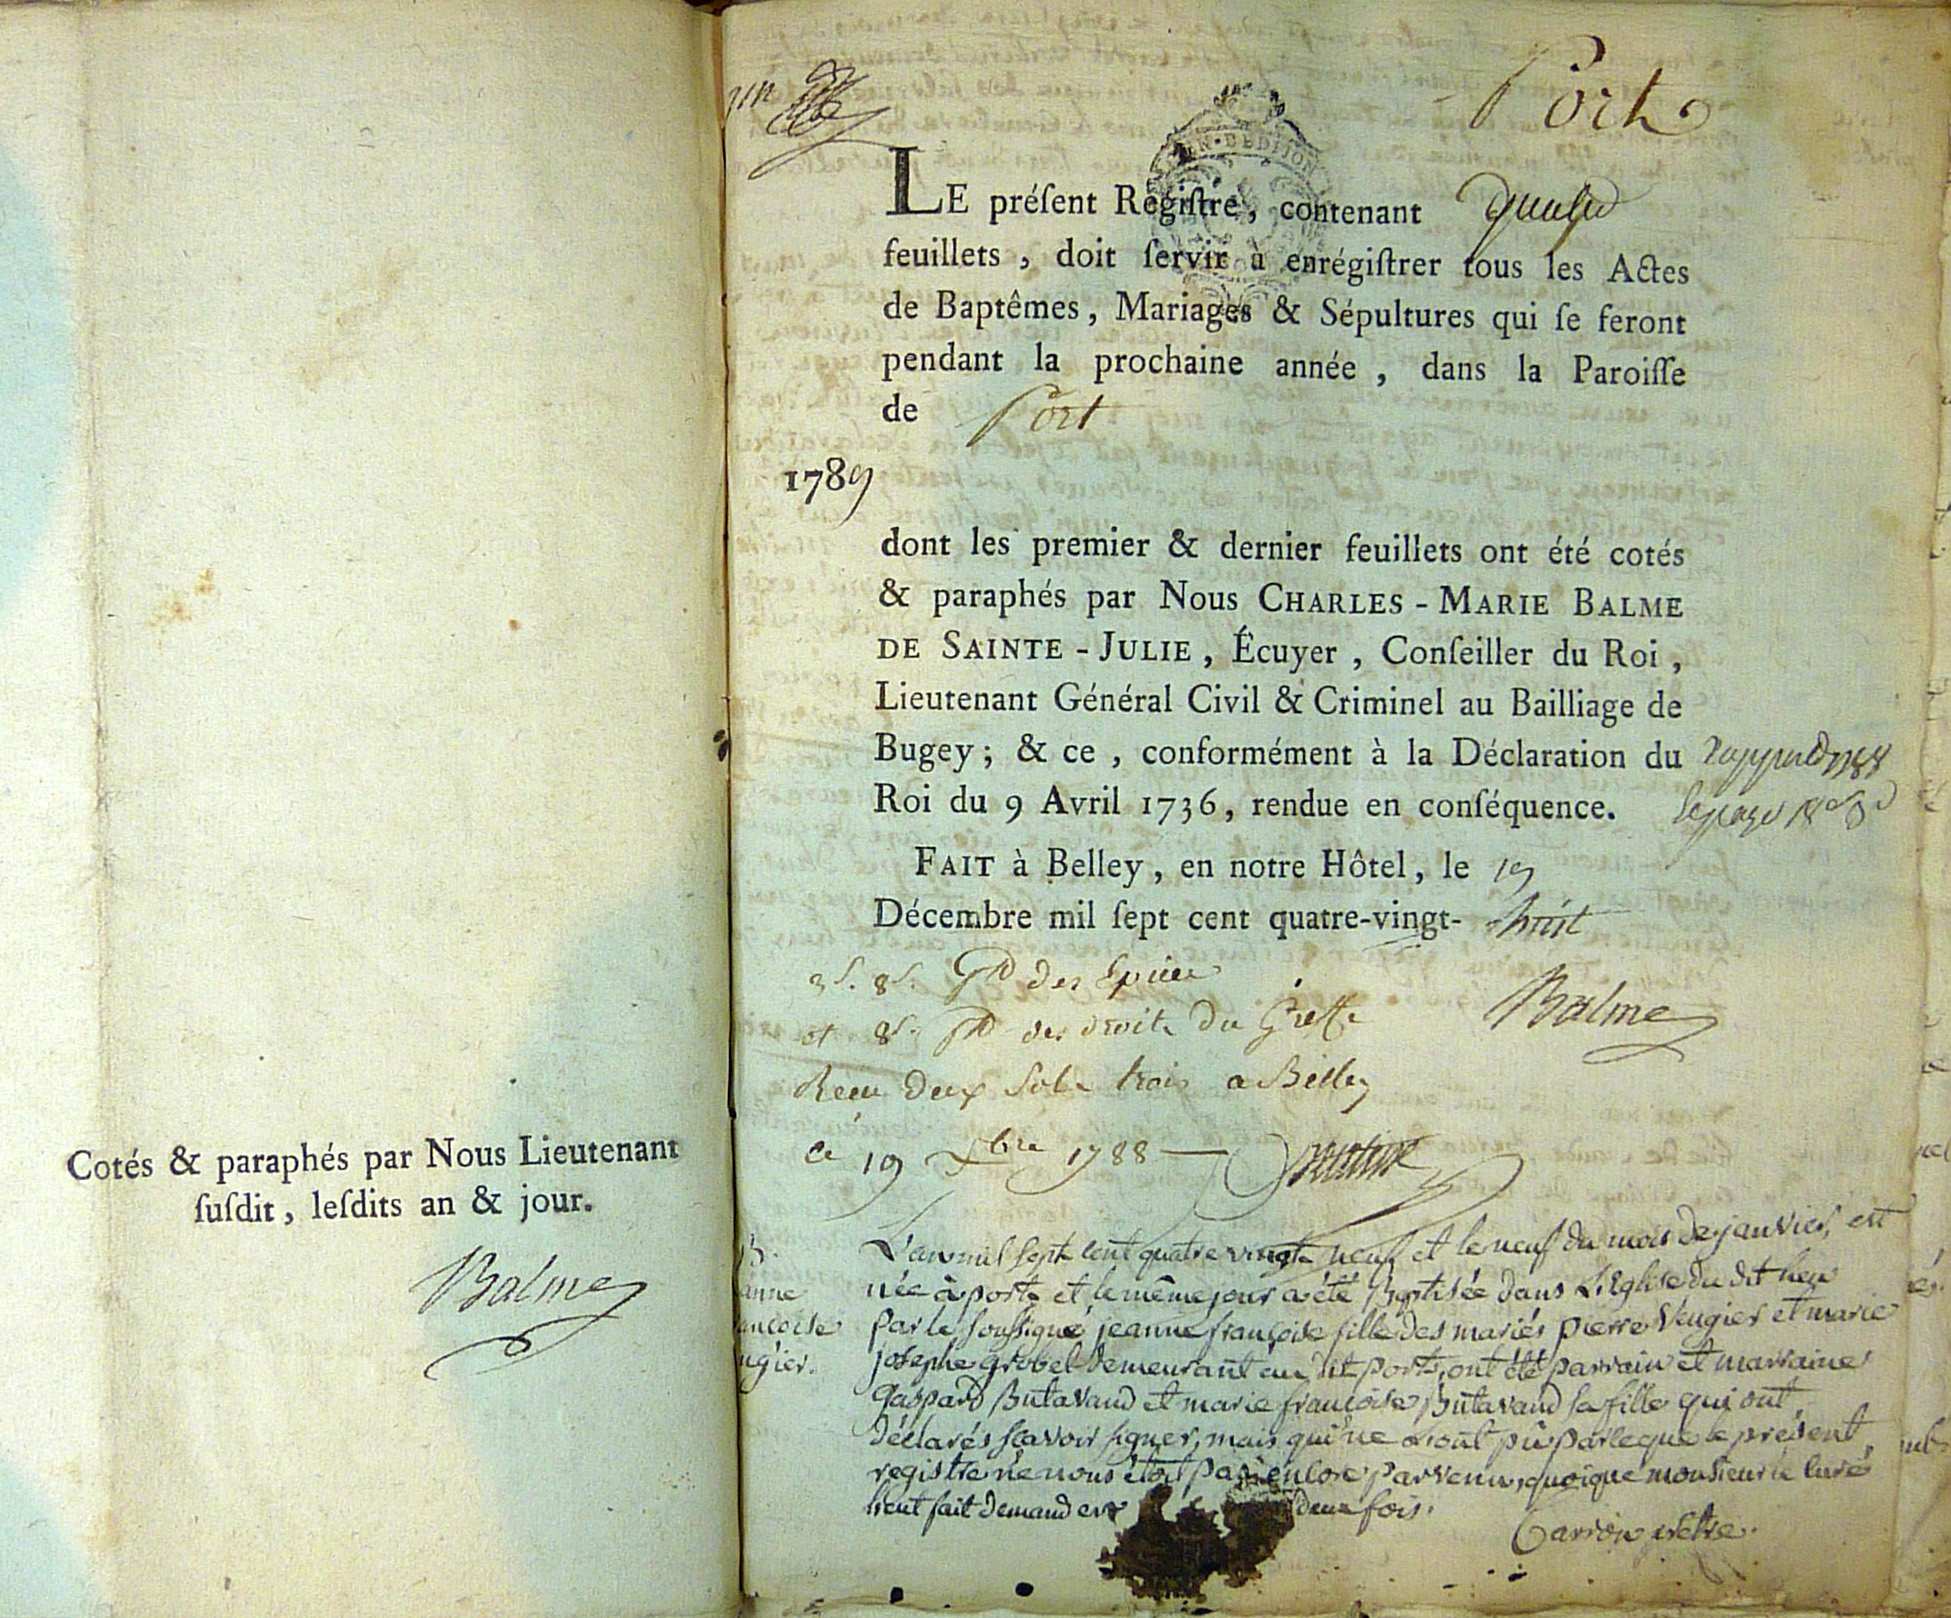 Cotés & paraphés par Nous Lieutenant
ſuſdit, leſdits an & jour.
Balme
Port
LE préſent Régiſtre, contenant quatre
feuillets, doit ſervir à enrégiſtrer tous les Actes
de Baptêmes, Mariages & Sépultures qui ſe feront
pendant la prochaine année, dans la Paroiſſe
de Port
1789
dont les premier & dernier feuillets ont été cotés
& paraphés par Nous CHARLES-MARIE BALME
DE SAINTE-JULIE, Écuyer, Conſeiller du Roi,
Lieutenant Général Civil & Criminel au Bailliage de
Bugey; & ce, conformément à la Déclaration du
Roi du 9 Avril 1736, rendue en conſéquence.
FAIT à Belley, en notre Hôtel, le 19
Décembre mil ſept cent quatre-vingt-huit
Balme
3s. 8d. des
et 8d. des droits du Greffe
Reçu deux sols trois a Belley
ce 19 Xbre 1788
B.
anne
ançoise
ugier.
L'an mil sept cent quatre vingt neuf et le neuf du mois de janvier, est
née à port et le même jour a été Baptisée dans L'Eglise du dit lieu
par le soussigné jeanne françoise fille des mariés pierre Vugier et marie
josephe grobel demeurant au dit port, ont été parrain et marraine
Gaspard Butavand et marie françoise Butavand sa fille qui ont
déclarés sçavoir signer, mais qui ne l'ont pû parceque le présent
registre ne nous étoit pas encore parvenu, quoique monsieur le curé
l'eut fait demander deux fois.
Carron prêtre.